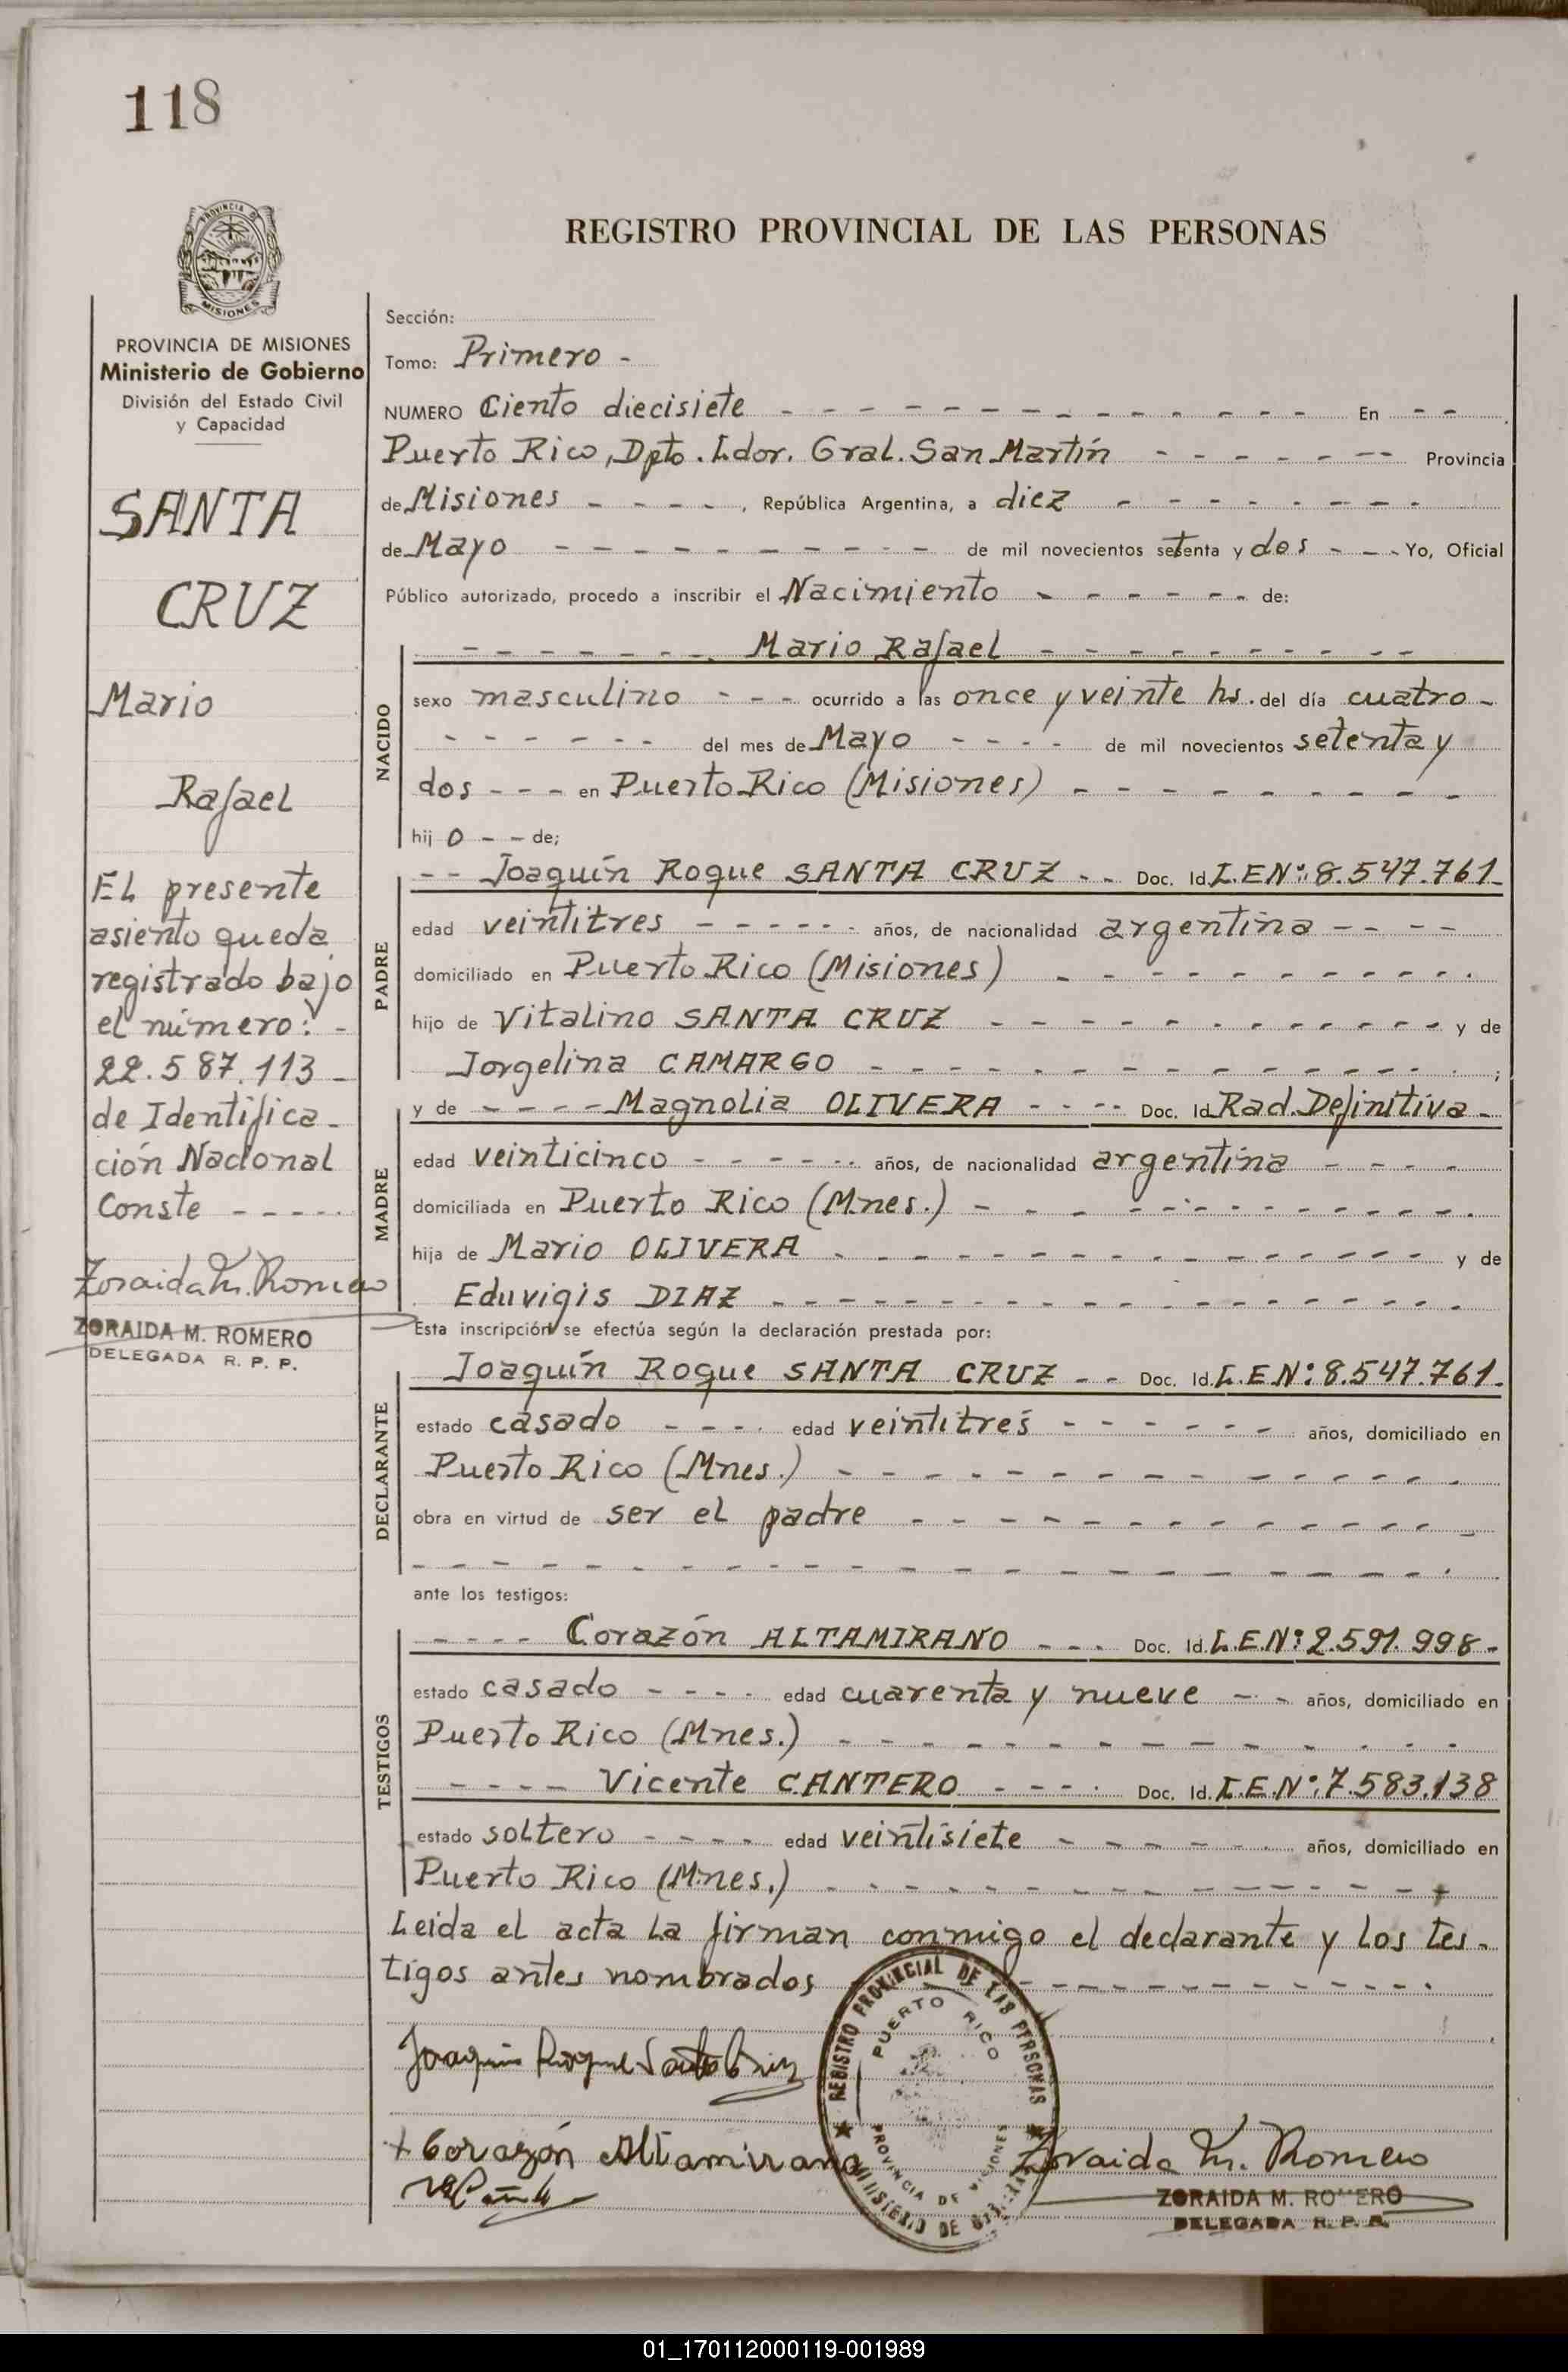 118
PROVINCIA DE
MISIONES
REGISTRO PROVINCIAL DE LAS PERSONAS
PROVINCIA DE MISIONES
Ministerio de Gobierno
División del Estado Civil
y Capacidad
SANTA
CRUZ
Mario
Rafael
El presente
asiento queda
registrado bajo
el número: -
22.587.113 -
de Identifica-
ción Nacional
Conste - - - - -
Zoraida M. Romero
ZORAIDA M. ROMERO
DELEGADA R. P. P.
Sección:
Tomo: Primero -
NUMERO Ciento diecisiete - - - En - -
Puerto Rico, Dpto. Ldor. Gral. San Martín - - - Provincia
de Misiones - - - -, República Argentina, a diez - - -
de Mayo - - - de mil novecientos setenta y dos - - - Yo, Oficial
Público autorizado, procedo a inscribir el Nacimiento - - - de:
NACIDO
- - - Mario Rafael - - -
sexo masculino - - - ocurrido a las once y veinte hs. del día cuatro -
- - - del mes de Mayo - - - - de mil novecientos setenta y
dos - - - en Puerto Rico (Misiones) - - -
hij o - - de;
PADRE
- - Joaquín Roque SANTA CRUZ - - Doc. Id. L.E.Nº: 8.547.761.
edad veintitres - - - años, de nacionalidad argentina - - - -
domiciliado en Puerto Rico (Misiones) - - -
hijo de Vitalino SANTA CRUZ - - - y de
Jorgelina CAMARGO - - - ;
MADRE
y de - - - - Magnolia OLIVERA - - - - Doc. Id. Rad. Definitiva -
edad veinticinco - - - años, de nacionalidad argentina - - - -
domiciliada en Puerto Rico (Mnes.) - - -
hija de Mario OLIVERA - - - y de
Eduvigis DIAZ - - -
Esta inscripción se efectúa según la declaración prestada por:
DECLARANTE
Joaquín Roque SANTA CRUZ - - Doc. Id. L.E.Nº: 8.547.761.
estado casado - - - - edad veintitres - - - años, domiciliado en
Puerto Rico (Mnes.) - - -
obra en virtud de ser el padre - - -
ante los testigos:
TESTIGOS
- - - - Corazón ALTAMIRANO - - - Doc. Id. L.E.Nº: 2.591.998 -
estado casado - - - - edad cuarenta y nueve - - años, domiciliado en
Puerto Rico (Mnes.) - - -
- - - - Vicente CANTERO - - - - Doc. Id. L.E.Nº: 7.583.138
estado soltero - - - - edad veintisiete - - - años, domiciliado en
Puerto Rico (Mnes.) - - -
Leida el acta la firman conmigo el declarante y los tes-
tigos antes nombrados - - -
REGISTRO PROVINCIAL DE LAS PERSONAS
PUERTO RICO
PROVINCIA DE MISIONES
MINISTERIO DE
Joaquin Roque Santa Cruz
+ Corazón Altamirano
Zoraida M. Romero
ZORAIDA M. ROMERO
DELEGADA R. P. P.
01_170112000119-001989